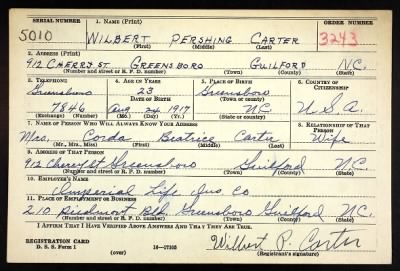 SERIAL NUMBER 1. NAME (Print) ORDER NUMBER
5010 WILBERT PERSHING CARTER 3243
(First) (Middle) (Last)
2. ADDRESS (Print)
912 CHERRY ST. GREENSBORO GUILFORD N.C.
(Number and street or R. F. D. number) (Town) (County) (State)
3. TELEPHONE 4. AGE IN YEARS 5. PLACE OF BIRTH 6. COUNTRY OF CITIZENSHIP
Greensboro 23 Greensboro
DATE OF BIRTH (Town or county)
7846 Aug 24 1917 N.C. U.S.A.
(Exchange) (Number) (Mo.) (Day) (Yr.) (State or country)
7. NAME OF PERSON WHO WILL ALWAYS KNOW YOUR ADDRESS 8. RELATIONSHIP OF THAT PERSON
Mrs. Corda Beatrice Carter Wife
(Mr., Mrs., Miss) (First) (Middle) (Last)
9. ADDRESS OF THAT PERSON
912 Cherry St Greensboro Guilford N.C.
(Number and street or R. F. D. number) (Town) (County) (State)
10. EMPLOYER'S NAME
Imperial Life Ins Co
11. PLACE OF EMPLOYMENT OR BUSINESS
210 Piedmont Bld. Greensboro Guilford N.C.
(Number and street or R. F. D. number) (Town) (County) (State)
I AFFIRM THAT I HAVE VERIFIED ABOVE ANSWERS AND THAT THEY ARE TRUE.
REGISTRATION CARD
D. S. S. Form 1 (over) 16—17105 Wilbert P. Carter
(Registrant's signature)